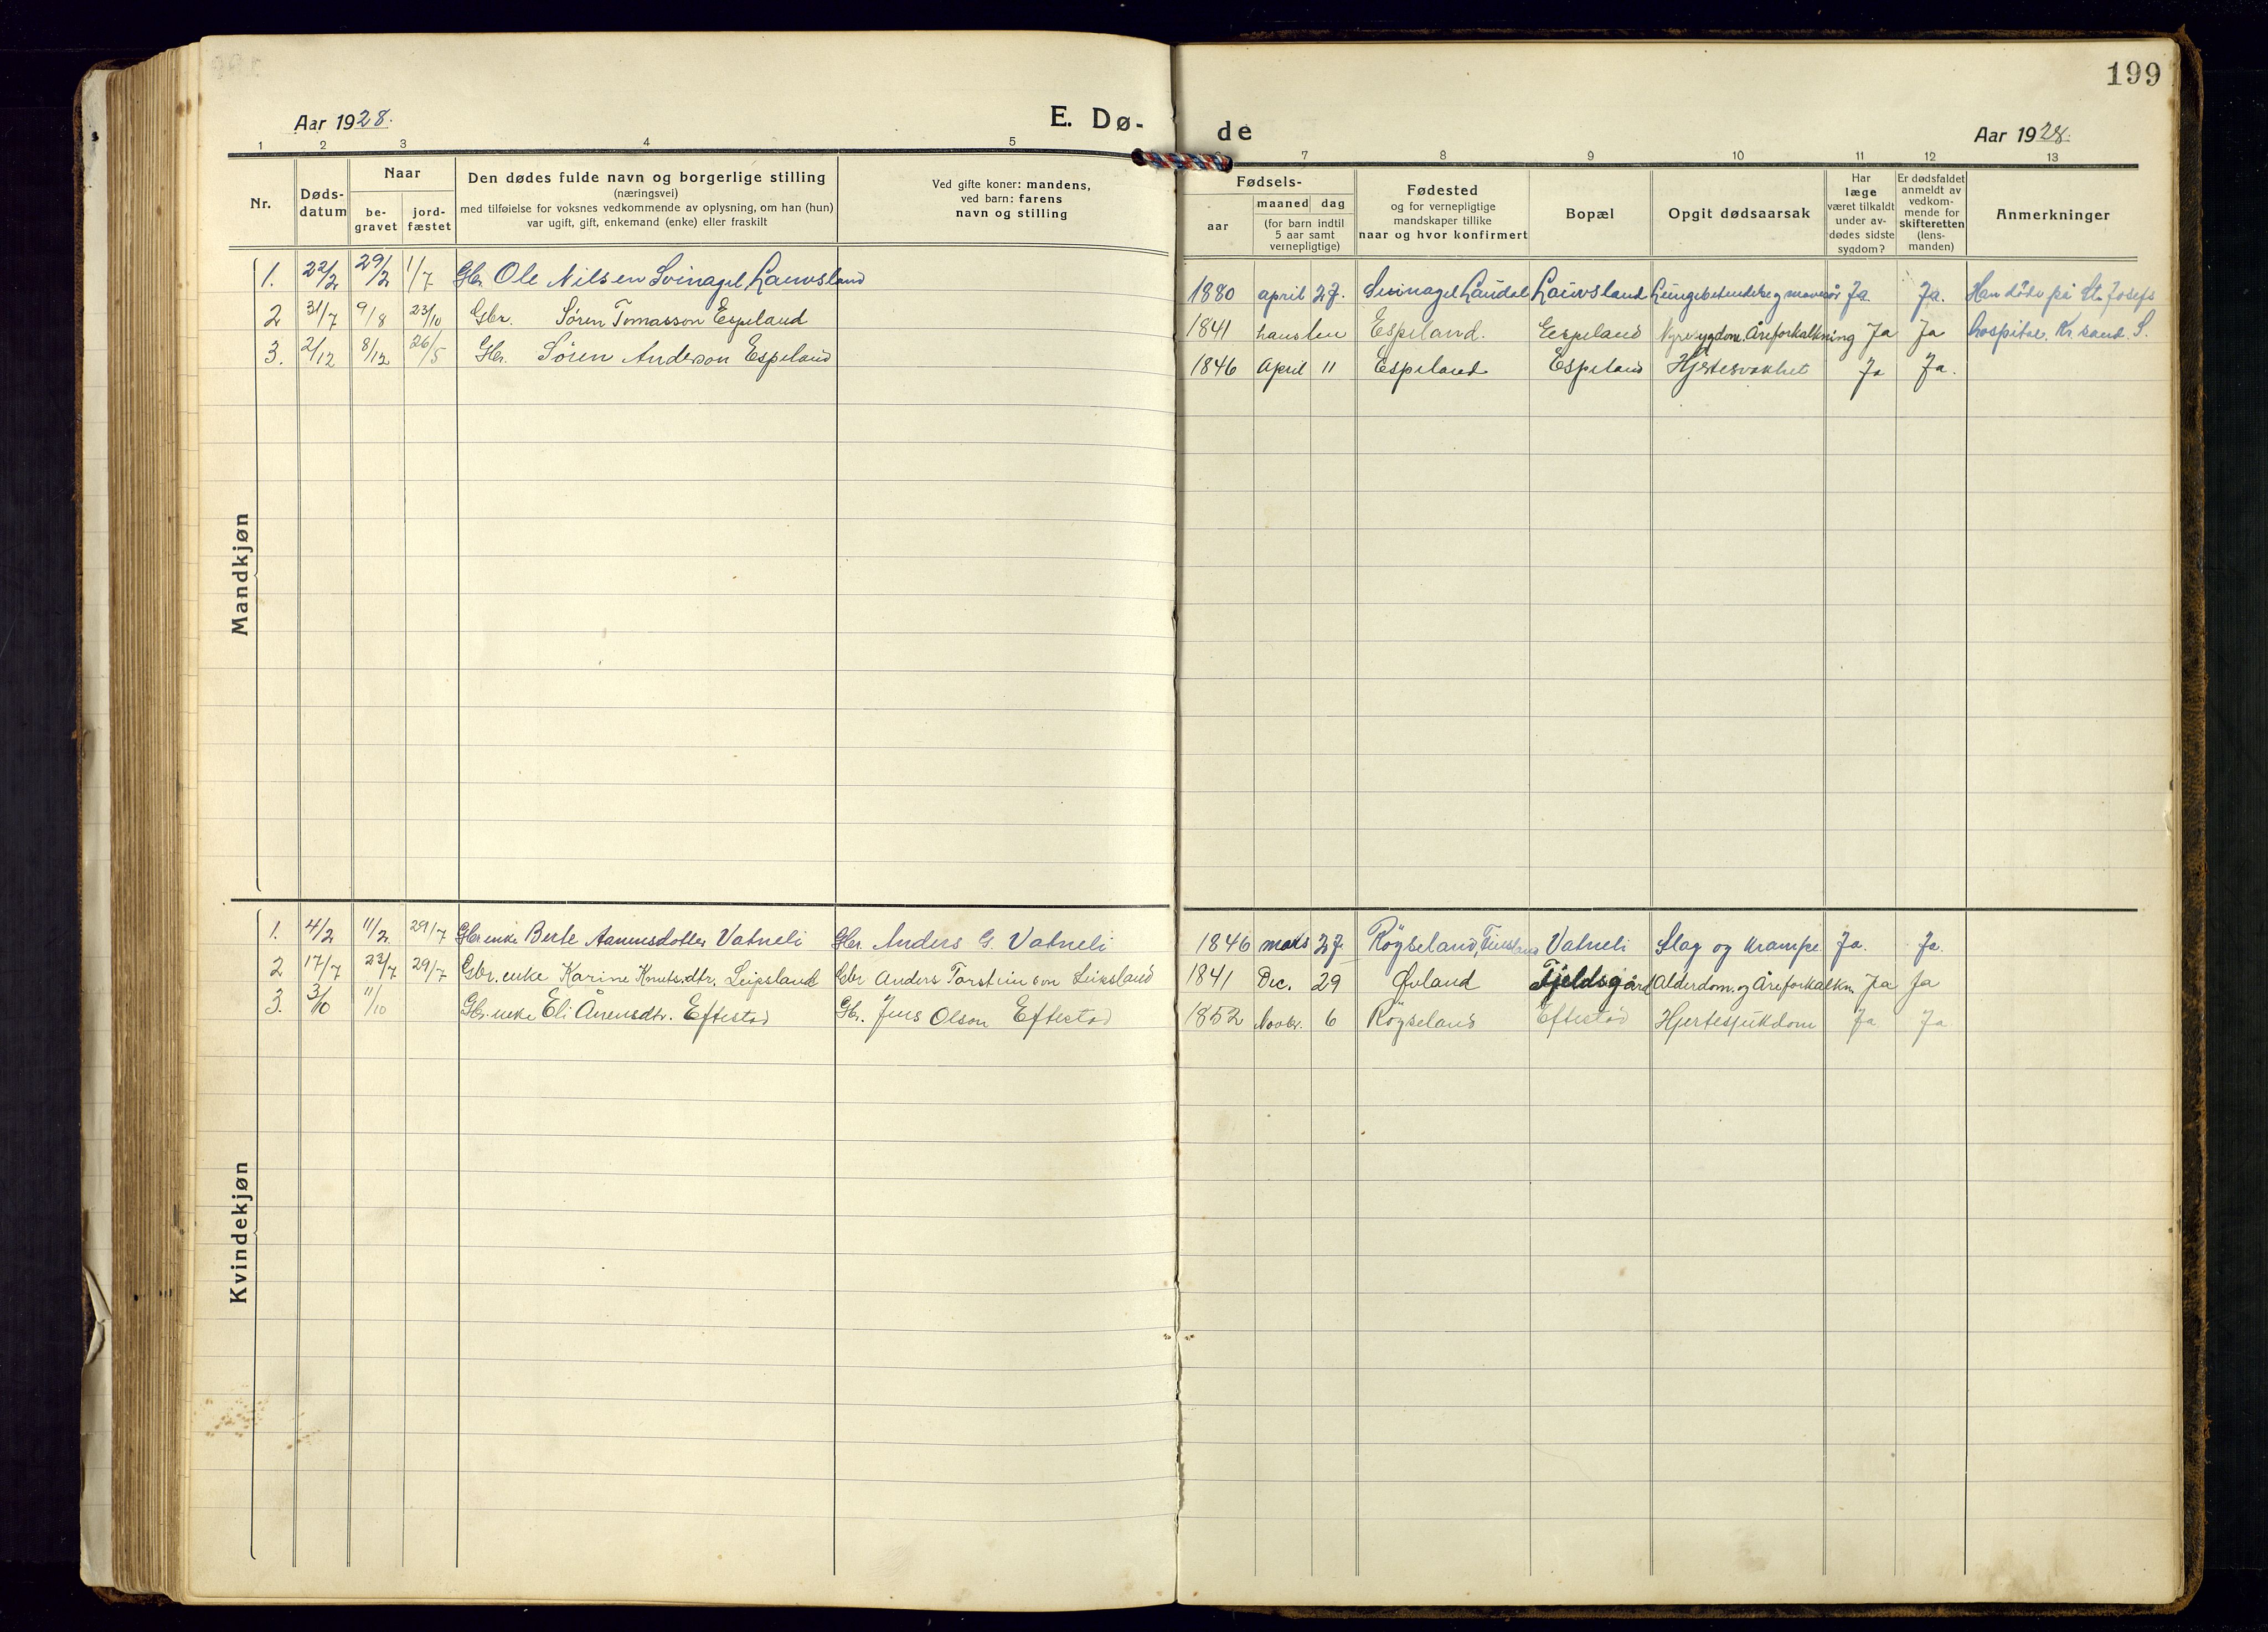 199
Aar 1928.
E. Dø-
de
Aar 1928.
1 2 3 4 5 7 8 9 10 11 12 13
Nr.
Døds-
datum
Naar
be-
gravet
jord-
fæstet
Den dødes fulde navn og borgerlige stilling
(næringsvei)
med tilføielse for voksnes vedkommende av oplysning, om han (hun)
var ugift, gift, enkemand (enke) eller fraskilt
Ved gifte koner: mandens,
ved barn: farens
navn og stilling
Fødsels-
aar
maaned dag
(for barn indtil
5 aar samt
vernepligtige)
Fødested
og for vernepligtige
mandskaper tillike
naar og hvor konfirmert
Bopæl
Opgit dødsaarsak
Har
læge
været tilkaldt
under av-
dødes sidste
sygdom?
Er dødsfaldet
anmeldt av
vedkom-
mende for
skifteretten
(lens-
manden)
Anmerkninger
Mandkjøn
1. 22/2 29/2 1/7 Gbr. Ole Nilsen Svinagel Lauvsland 1880 april 27. Svinagel Laudal Lauvsland Lungebetendelse og mavesår Ja. Ja. Han döde på St. Josefs
2 31/7 9/8 23/10 Gbr. Søren Tomasson Espeland 1841 hausten Espeland. Espeland Nyresygdom. Åreforkalkning Ja Ja hospital, Kr.sand S.
3. 2/12 8/12 26/5 Gbr. Søren Anderson Espeland 1846 April 11 Espeland Espeland Hjertesvakhet Ja Ja.
Kvindekjøn
1. 4/2 11/2 29/7 Gbr enke Berte Aanensdotter Vatneli Gbr. Anders G. Vatneli 1846 mars 27. Röyseland, Finsland Vatneli Slag og krampe Ja. Ja.
2 17/7 23/7 29/7 Gbr. enke Karine Knutsdtr. Leipsland Gbr Anders Torsteinson Leipsland 1841 Dec. 29 Øvland Fjeldsgård Alderdom. og Åreforkalkn. Ja Ja
3. 3/10 11/10 Gbr. enke Eli Ånensdtr. Eftestad Gbr. Jens Olson Eftestad 1852 Novbr. 6 Röyseland Eftestad Hjertesjukdom Ja Ja